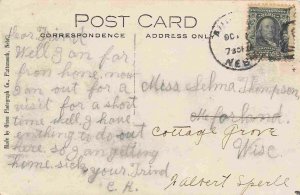 POST CARD
CORRESPONDENCE
ADDRESS ONLY
OCT
7 30
NEB
Well I am far
from home, now
I am out for a
visit for a short
time well I have
nothing to do out
here so I am getting
home sick your Frind
C. K.
Miss Selma Thompson
McFarland
Cottage Grove
Wisc
Halbert Sperle
Made by Olson Photograph Co., Plattsmouth, Nebr.